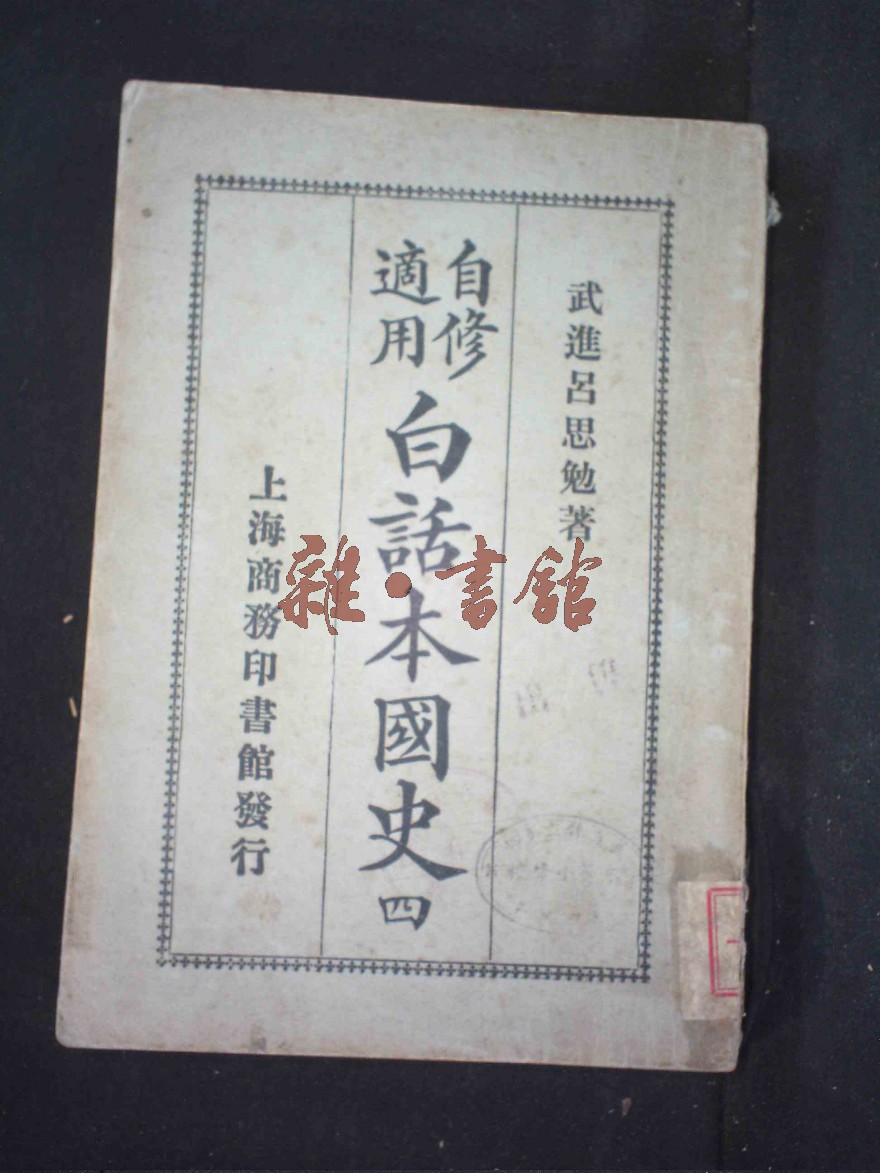 武進呂思勉著
自修
適用
白話本國史
四
上海商務印書館發行
雜·書館